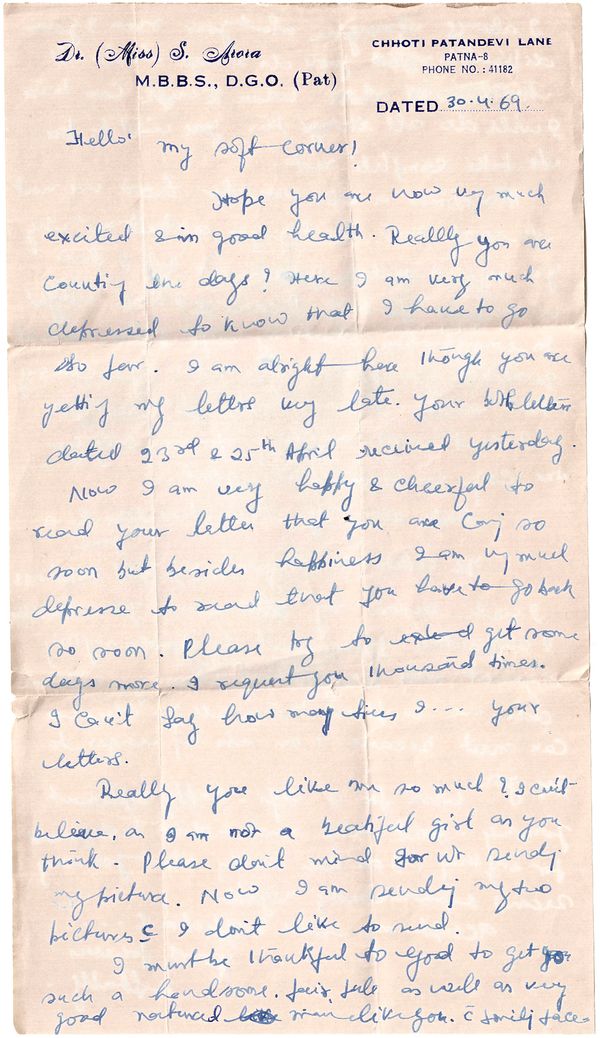 Dr. (Miss) S. Arora
M.B.B.S., D.G.O. (Pat)
CHHOTI PATANDEVI LANE
PATNA-8
PHONE NO.: 41182
DATED 30.4.69.
Hello! my soft corner!
Hope you are now very much
excited & in good health. Really you are
Counting the days? Here I am very much
depressed to know that I have to go
so far. I am alright here though you are
getting my letters very late. your both letters
dated 23rd & 25th April received yesterday.
Now I am very happy & cheerful to
read your letter that you are Coming so
soon but besides happiness I am very much
depresse to read that you have to go back
so soon. Please try to get some
days more. I request you thousand times.
I Can't say how many times I... your
letters.
Really you like me so much? I can't
believe, as I am not a beatiful girl as you
think. Please don't mind for not sending
my picture. Now I am sending my two
pictures I don't like to send.
I must be thankful to God to get you
such a handsome, fair, as well as very
good natured man like you. c̄ smiling face.